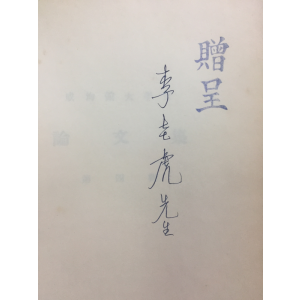 贈呈
李古虎先生